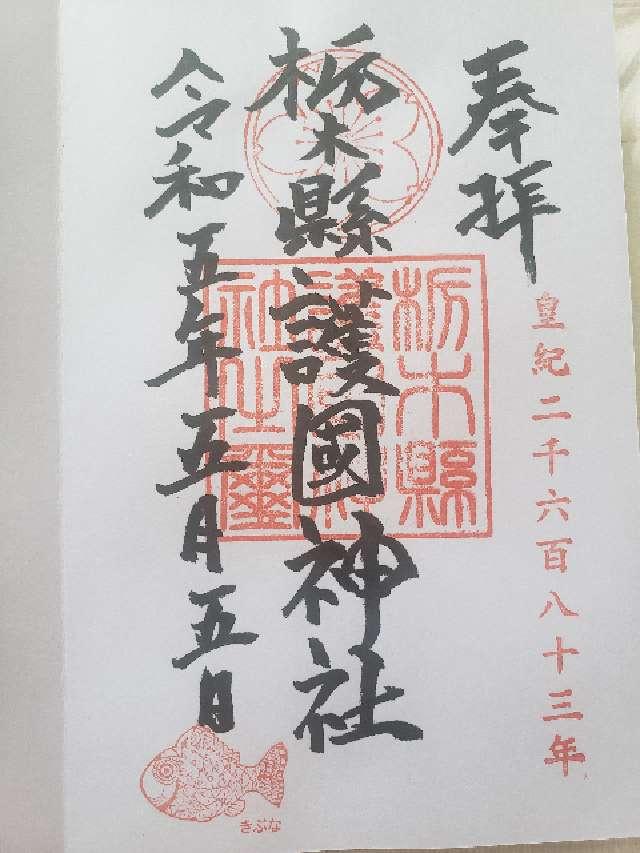 奉拝
皇紀二千六百八十三年
栃木縣護國神社
栃木縣
護國神
社之璽
令和五年五月五日
きぶな